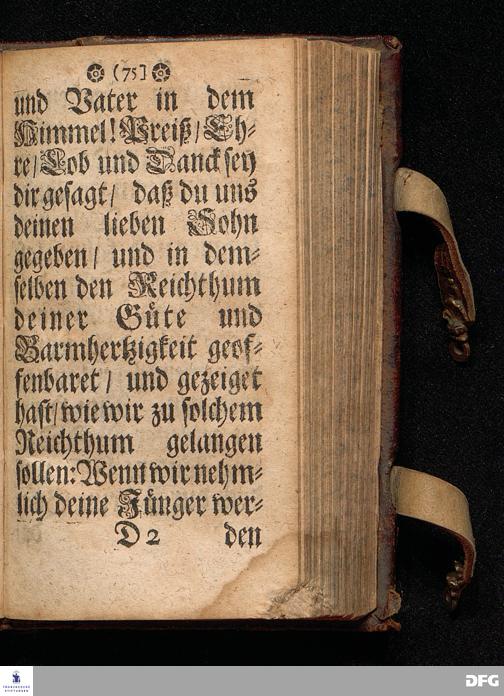 (75)
und Vater in dem
Himmel! Preiß/ Eh-
re/ Lob und Danck sey
dir gesagt/ daß du uns
deinen lieben Sohn
gegeben/ und in dem-
selben den Reichthum
deiner Güte und
Barmhertzigkeit geof-
fenbaret/ und gezeiget
hast/ wie wir zu solchem
Reichthum gelangen
sollen: Wenn wir nehm-
lich deine Jünger wer-
D 2 den
FRANCKESCHE
STIFTUNGEN
DFG